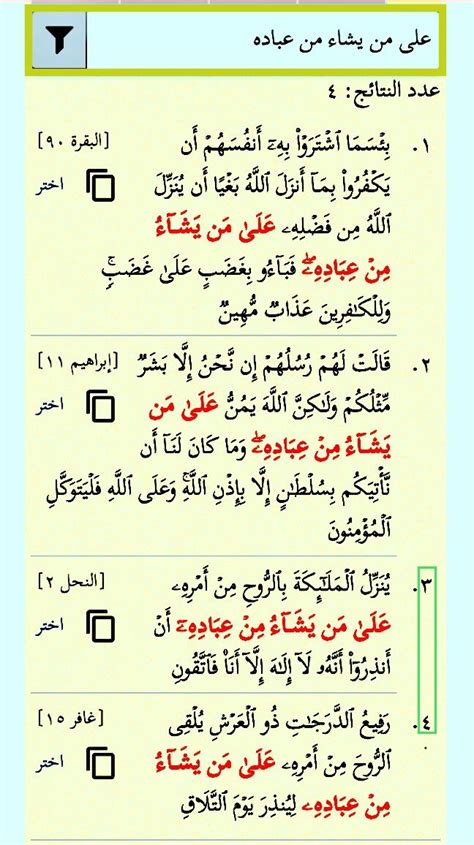 على من يشاء من عباده
عدد النتائج: ٤
١. بِئۡسَمَا ٱشۡتَرَوۡاْ بِهِۦٓ أَنفُسَهُمۡ أَن [البقرة ٩٠]
يَكۡفُرُواْ بِمَآ أَنزَلَ ٱللَّهُ بَغۡيًا أَن يُنَزِّلَ اختر
ٱللَّهُ مِن فَضۡلِهِۦ عَلَىٰ مَن يَشَآءُ
مِنۡ عِبَادِهِۦۖ فَبَآءُو بِغَضَبٍ عَلَىٰ غَضَبٖۚ
وَلِلۡكَٰفِرِينَ عَذَابٞ مُّهِينٞ
٢. قَالَتۡ لَهُمۡ رُسُلُهُمۡ إِن نَّحۡنُ إِلَّا بَشَرٞ [إبراهيم ١١]
مِّثۡلُكُمۡ وَلَٰكِنَّ ٱللَّهَ يَمُنُّ عَلَىٰ مَن اختر
يَشَآءُ مِنۡ عِبَادِهِۦۖ وَمَا كَانَ لَنَآ أَن
نَّأۡتِيَكُم بِسُلۡطَٰنٍ إِلَّا بِإِذۡنِ ٱللَّهِۚ وَعَلَى ٱللَّهِ فَلۡيَتَوَكَّلِ
ٱلۡمُؤۡمِنُونَ
٣. يُنَزِّلُ ٱلۡمَلَٰٓئِكَةَ بِٱلرُّوحِ مِنۡ أَمۡرِهِۦ [النحل ٢]
عَلَىٰ مَن يَشَآءُ مِنۡ عِبَادِهِۦٓ أَنۡ اختر
أَنذِرُوٓاْ أَنَّهُۥ لَآ إِلَٰهَ إِلَّآ أَنَا۠ فَٱتَّقُونِ
٤. رَفِيعُ ٱلدَّرَجَٰتِ ذُو ٱلۡعَرۡشِ يُلۡقِي [غافر ١٥]
ٱلرُّوحَ مِنۡ أَمۡرِهِۦ عَلَىٰ مَن يَشَآءُ اختر
مِنۡ عِبَادِهِۦ لِيُنذِرَ يَوۡمَ ٱلتَّلَاقِ